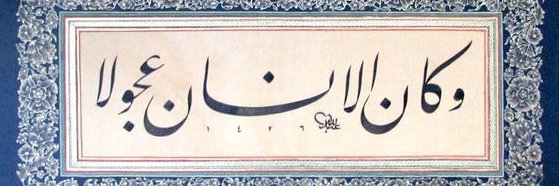 وكان الانسان عجولا
١٤٢٦